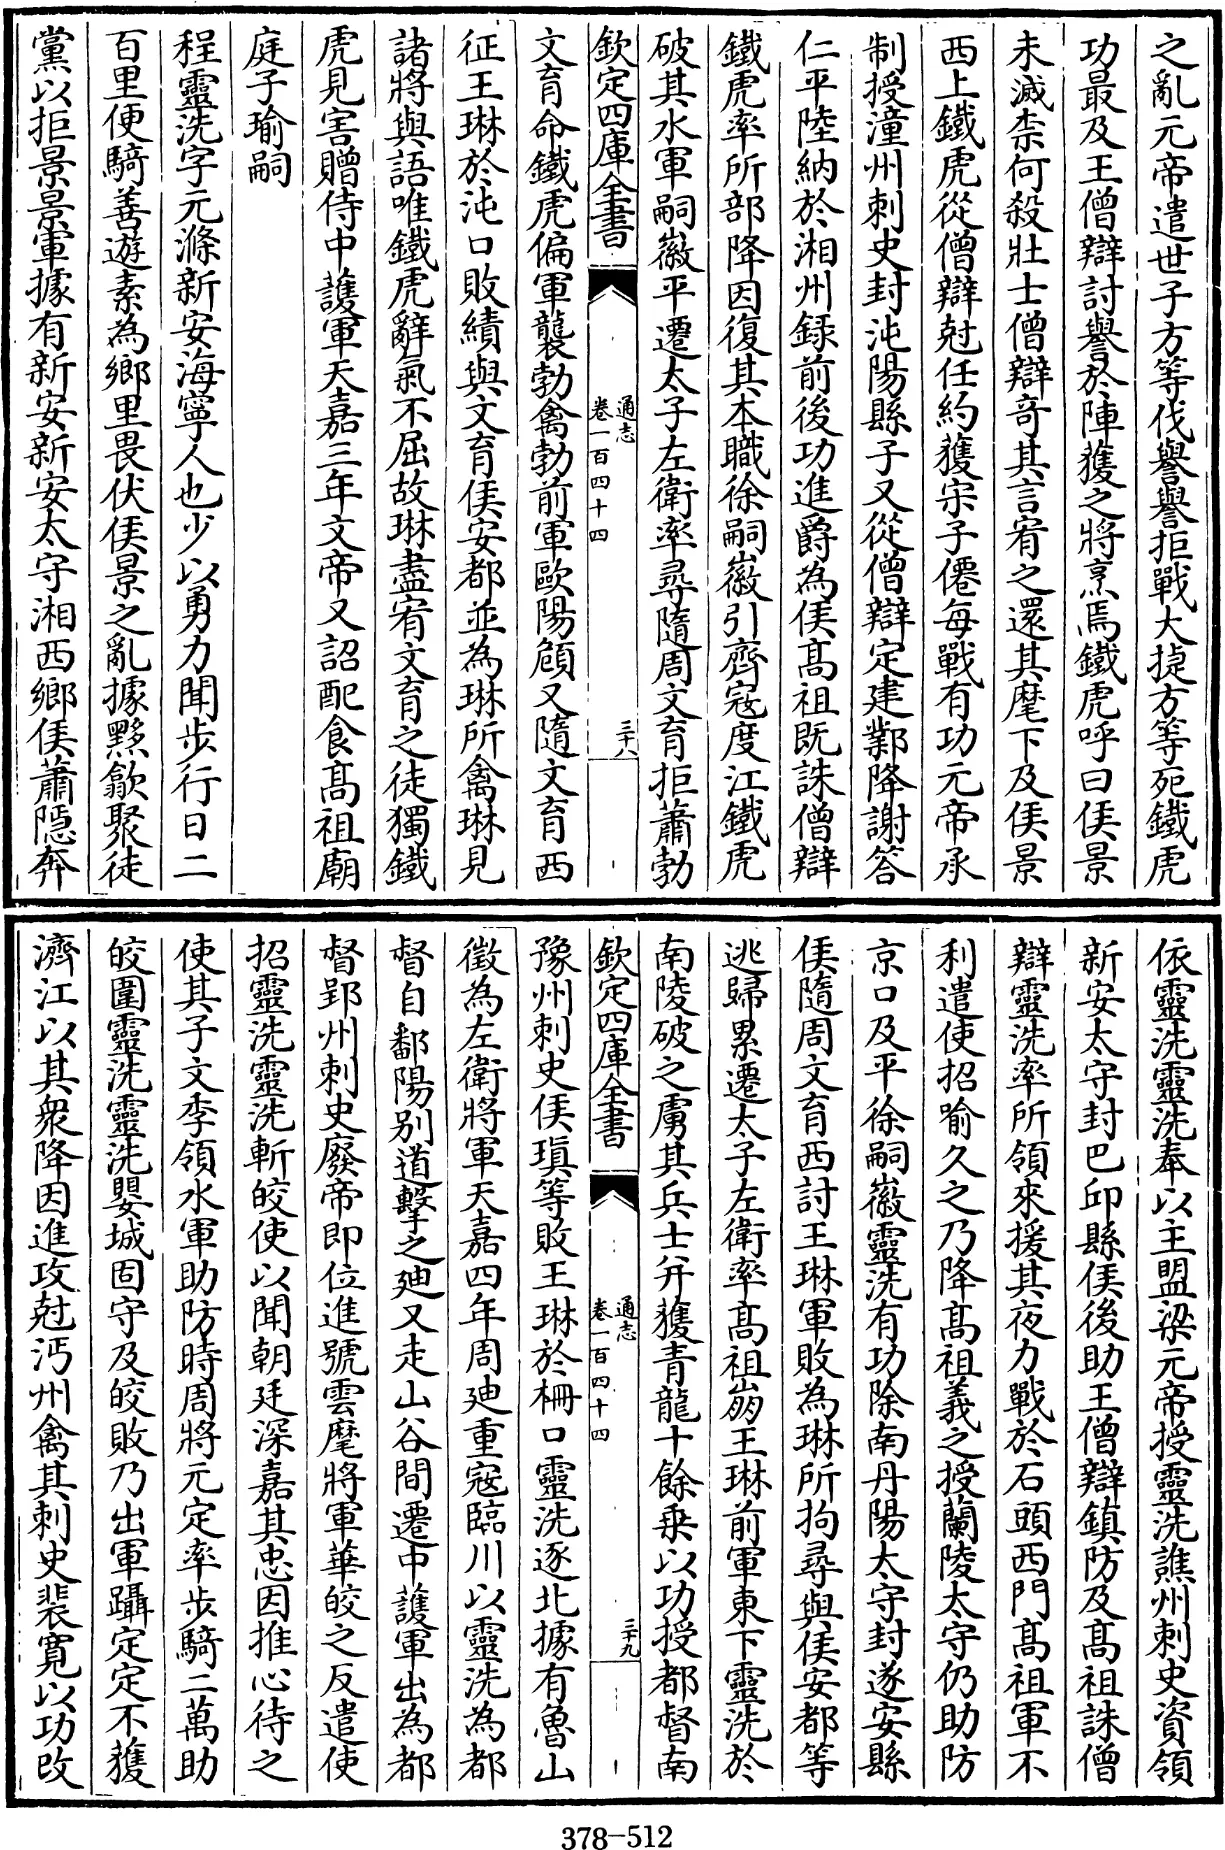 之亂元帝遣世子方等伐譽譽拒戰大捷方等死鐵虎
功最及王僧辯討譽於陣獲之將烹焉鐵虎呼曰侯景
未滅柰何殺壯士僧辯奇其言宥之還其麾下及侯景
西上鐵虎從僧辯尅任約獲宋子僊每戰有功元帝承
制授潼州刺史封沌陽縣子又從僧辯定建鄴降謝答
仁平陸納於湘州録前後功進爵為侯髙祖既誅僧辯
鐵虎率所部降因復其本職徐嗣徽引齊寇度江鐵虎
破其水軍嗣徽平遷太子左衛率尋隨周文育拒蕭勃
欽定四庫全書
通志
卷一百四十四
三十八
文育命鐵虎偏軍襲勃禽勃前軍歐陽頠又隨文育西
征王琳於沌口敗績與文育侯安都並為琳所禽琳見
諸將與語唯鐵虎辭氣不屈故琳盡宥文育之徒獨鐵
虎見害贈侍中護軍天嘉三年文帝又詔配食髙祖廟
庭子瑜嗣
程靈洗字元滌新安海寧人也少以勇力聞步行日二
百里便騎善遊素為鄉里畏伏侯景之亂據黟歙聚徒
黨以拒景景軍據有新安新安太守湘西鄉侯蕭隱奔
依靈洗靈洗奉以主盟梁元帝授靈洗譙州刺史資領
新安太守封巴邱縣侯後助王僧辯鎮防及髙祖誅僧
辯靈洗率所領來援其夜力戰於石頭西門髙祖軍不
利遣使招喻久之乃降髙祖義之授蘭陵太守仍助防
京口及平徐嗣徽靈洗有功除南丹陽太守封遂安縣
侯隨周文育西討王琳軍敗為琳所拘尋與侯安都等
逃歸累遷太子左衛率髙祖崩王琳前軍東下靈洗於
南陵破之虜其兵士并獲青龍十餘乗以功授都督南
欽定四庫全書
通志
卷一百四十四
三十九
豫州刺史侯瑱等敗王琳於柵口靈洗逐北據有魯山
徵為左衛將軍天嘉四年周廸重寇臨川以靈洗為都
督自鄱陽别道擊之廸又走山谷間遷中護軍出為都
督郢州刺史廢帝即位進號雲麾將軍華皎之反遣使
招靈洗靈洗斬皎使以聞朝廷深嘉其忠因推心待之
使其子文季領水軍助防時周將元定率步騎二萬助
皎圍靈洗靈洗嬰城固守及皎敗乃出軍躡定定不獲
濟江以其衆降因進攻尅沔州禽其刺史裴寛以功改
378-512